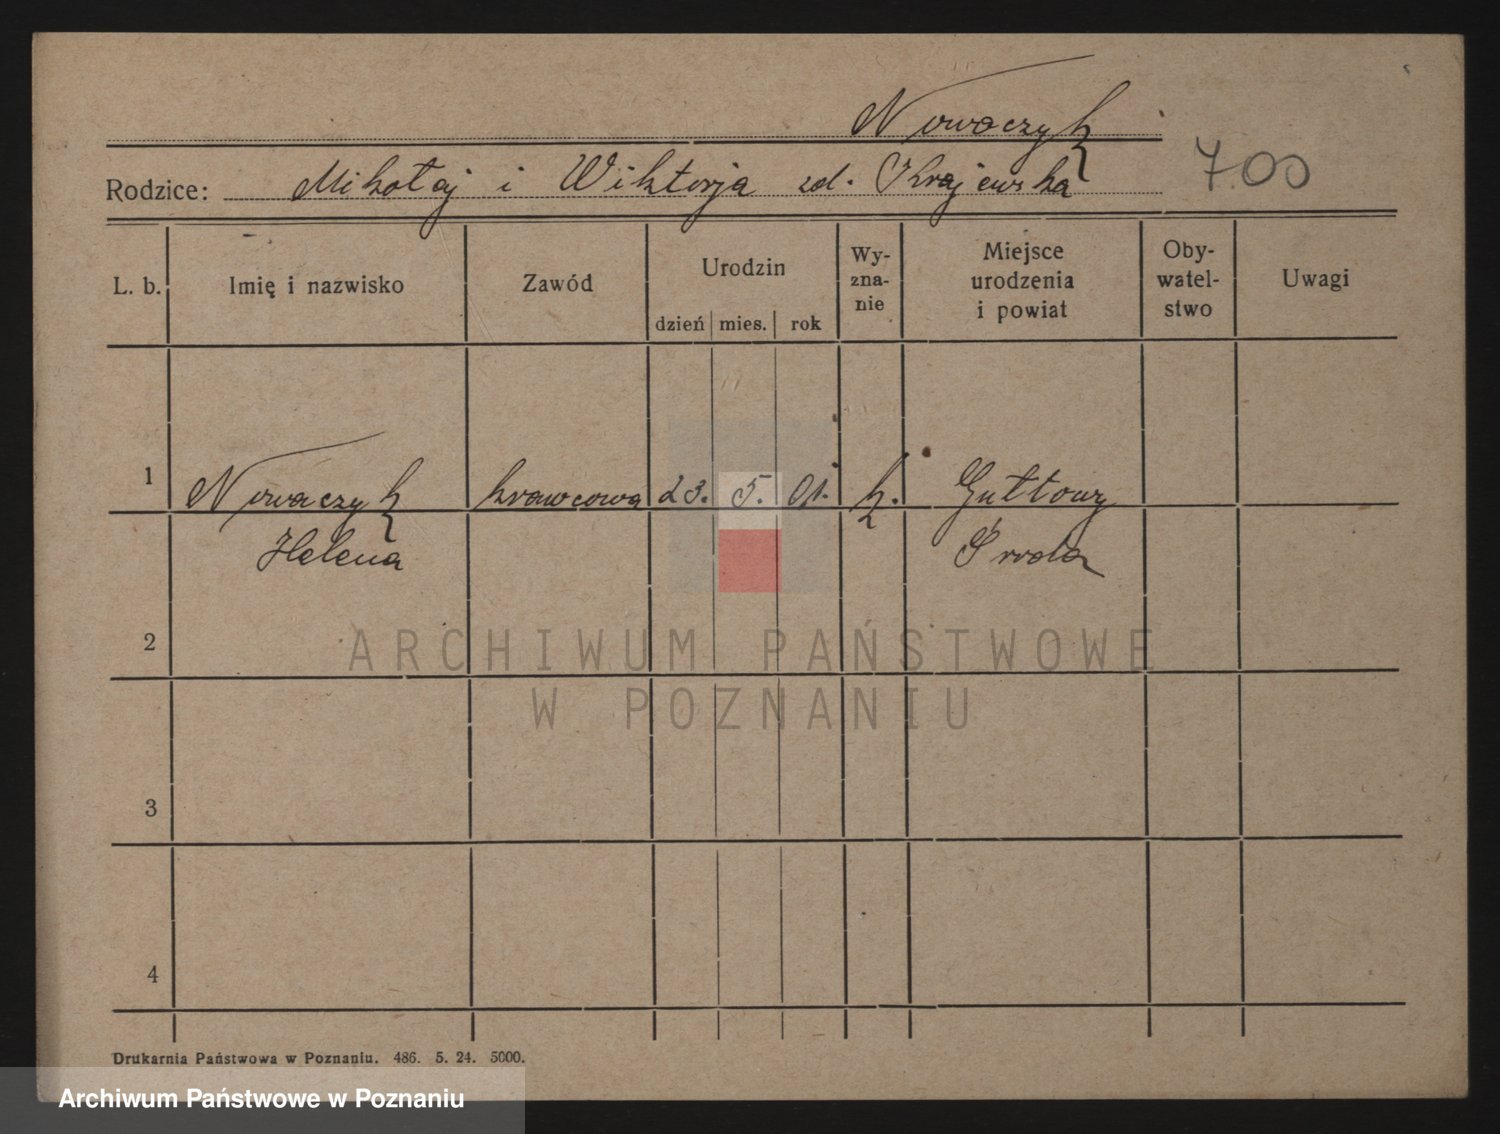 Nowaczyk
Rodzice: Mikołaj i Wiktorja zd. Krajewska 700
L. b. Imię i nazwisko Zawód Urodzin dzień mies. rok Wy-zna-nie Miejsce urodzenia i powiat Oby-watel-stwo Uwagi
1 Nowaczyk krawcowa 23. 5. 01. k. Gułtowy
Helena Środa
2
ARCHIWUM PAŃSTWOWE
W POZNANIU
3
4
Drukarnia Państwowa w Poznaniu. 486. 5. 24. 5000.
Archiwum Państwowe w Poznaniu